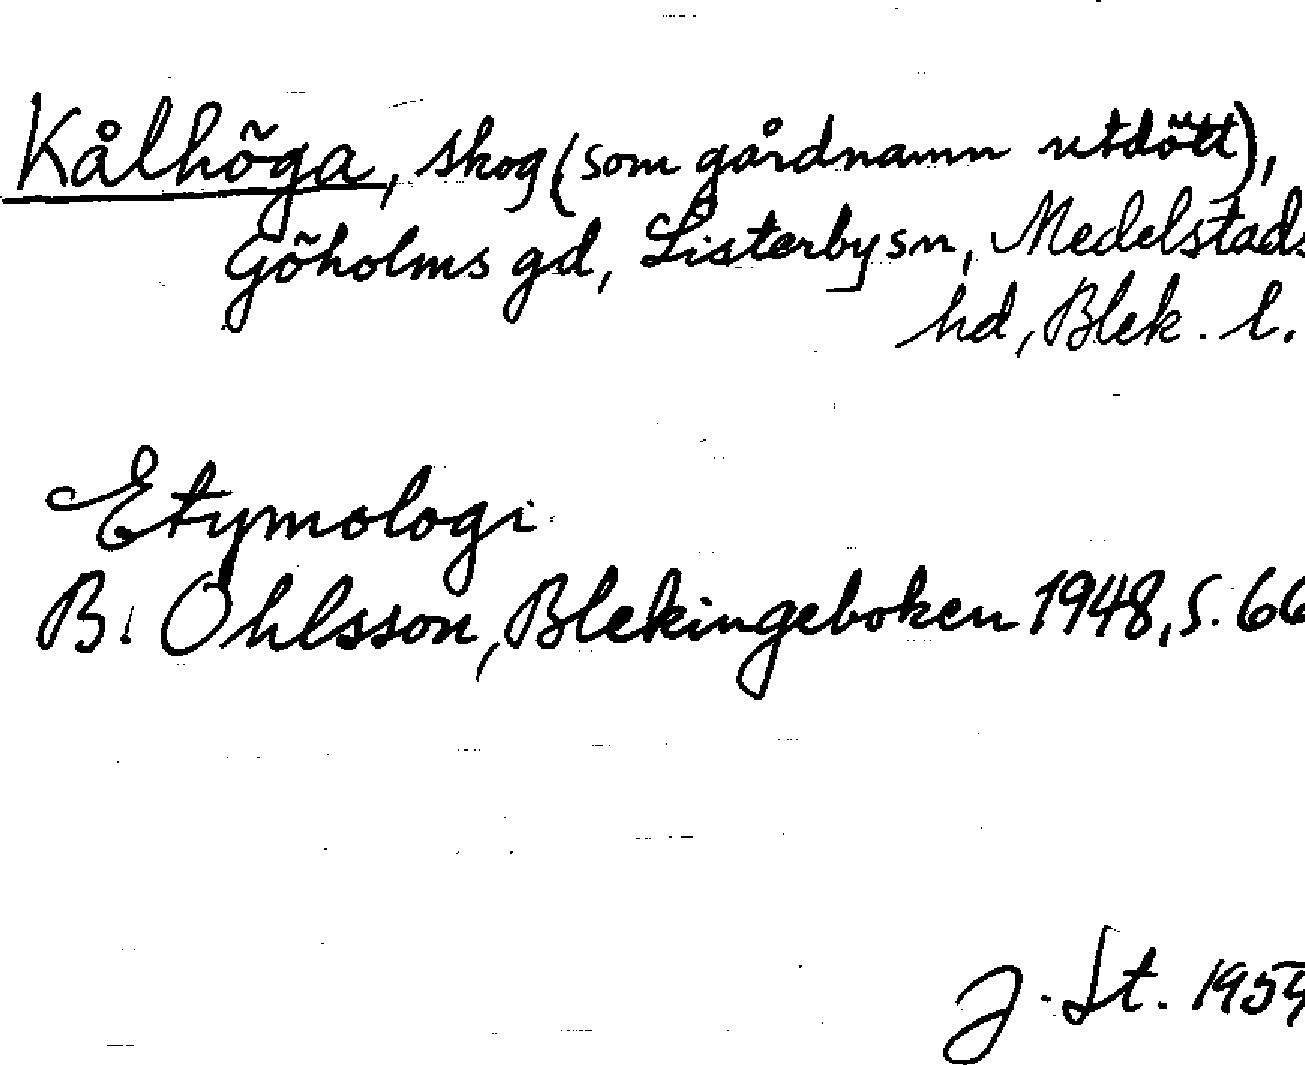 Kålhöga, skog (som gårdnamn utdött),
Göholms gd, Listerby sn, Medelstads
hd, Blek. l.
Etymologi
B. Ohlsson, Blekingeboken 1948, s. 66
J. St. 1959